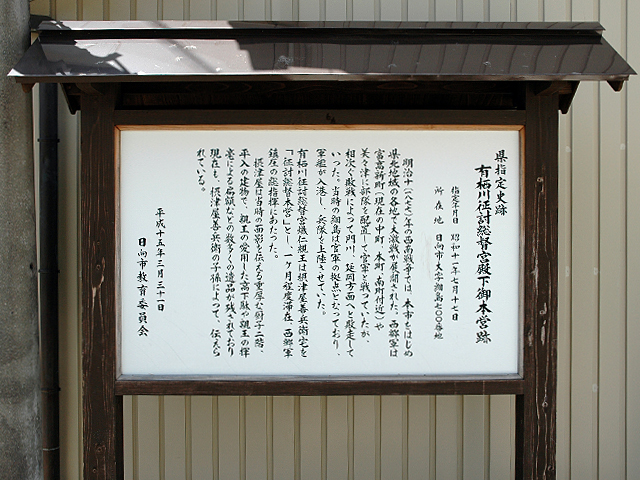 県指定史跡
有栖川征討総督宮殿下御本営跡
指定年月日 昭和十一年七月十七日
所在地 日向市大字細島七〇〇番地
明治十(一八七七)年の西南戦争では、本市をはじめ
県北地域の各地で大激戦が展開された。西郷軍は
富高新町(現在の中町、本町、南町付近)や
美々津に部隊を配置して官軍と戦っていたが、
相次ぐ敗戦によって門川、延岡方面へと敗走して
いった。当時の細島は官軍の拠点となっており、
軍艦が入港し、兵隊を上陸させていた。
有栖川征討総督宮熾仁親王は摂津屋善兵衛宅を
「征討総督本営」とし、一ヶ月程度滞在、西郷軍
鎮圧の総指揮にあたった。
摂津屋は当時の面影を伝える重厚な厨子二階、
平入の建物で、親王の愛用した高下駄や親王の揮
毫による扁額などの数多くの遺品が残されており
現在も、摂津屋善兵衛の子孫によって、伝えら
れている。
平成十五年三月三十一日
日向市教育委員会